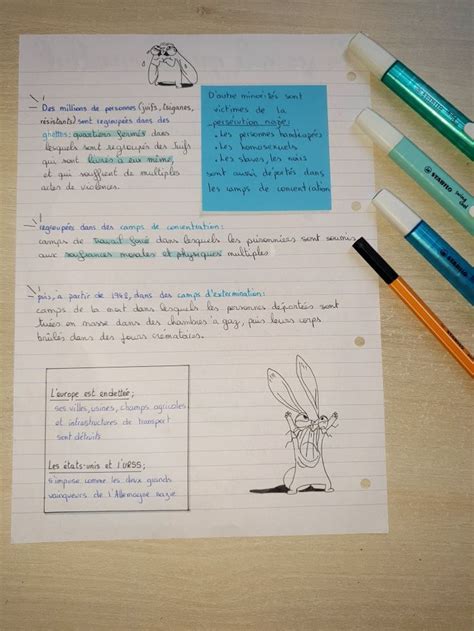 Des millions de personnes (juifs, tsiganes,
résistants) sont regroupées dans des
ghettos: quartiers fermés dans
lesquels sont regroupés des Juifs
qui sont livrés à eux même,
et qui souffrent de multiples
actes de violences.
D'autre minorités sont
victimes de la
persécution nazie:
. Les personnes handicapés
. Les homosexuels
. Les slaves, les noirs
sont aussi déportés dans
les camps de concentration
regroupées dans des camps de concentration:
camps de travail forcé dans lesquels les prisonniers sont soumis
aux souffrances morales et physiques multiples.
puis, à partir de 1942, dans des camps d'extermination:
camps de la mort dans lesquels les personnes déportées sont
tuées en masse dans des chambres à gaz, puis leurs corps
brûlés dans des fours crématoires.
L'europe est endettée;
ses villes, usines, champs agricoles
et infrastructures de transport
sont détruits
Les états-unis et l'URSS;
s'impose comme les deux grands
vainqueurs de l'Allemagne nazie
STABILO
STABILO